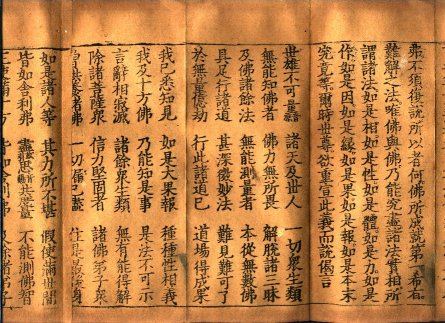 弗不須復說所以者何佛所成就第一希有
難解之法唯佛與佛乃能究盡諸法實相所
謂諸法如是相如是性如是體如是力如是
作如是因如是緣如是果如是報如是本末
究竟等爾時世尊欲重宣此義而說偈言
世雄不可量 諸天及世人 一切衆生類
無能知佛者 佛力無所畏 解脫諸三昧
及佛諸餘法 無能測量者 本從無數佛
具足行諸道 甚深微妙法 難見難可了
於無量億劫 行此諸道已 道場得成果
我已悉知見 如是大果報 種種性相義
我及十方佛 乃能知是事 是法不可示
言辭相寂滅 諸餘衆生類 無有能得解
除諸菩薩衆 信力堅固者 諸佛弟子衆
曾供養諸佛 一切漏已盡 住是最後身
如是諸人等 其力所不堪 假使滿世間
皆如舍利弗 盡思共度量 不能測佛智
正使滿十方 皆如舍利弗 及餘諸弟子